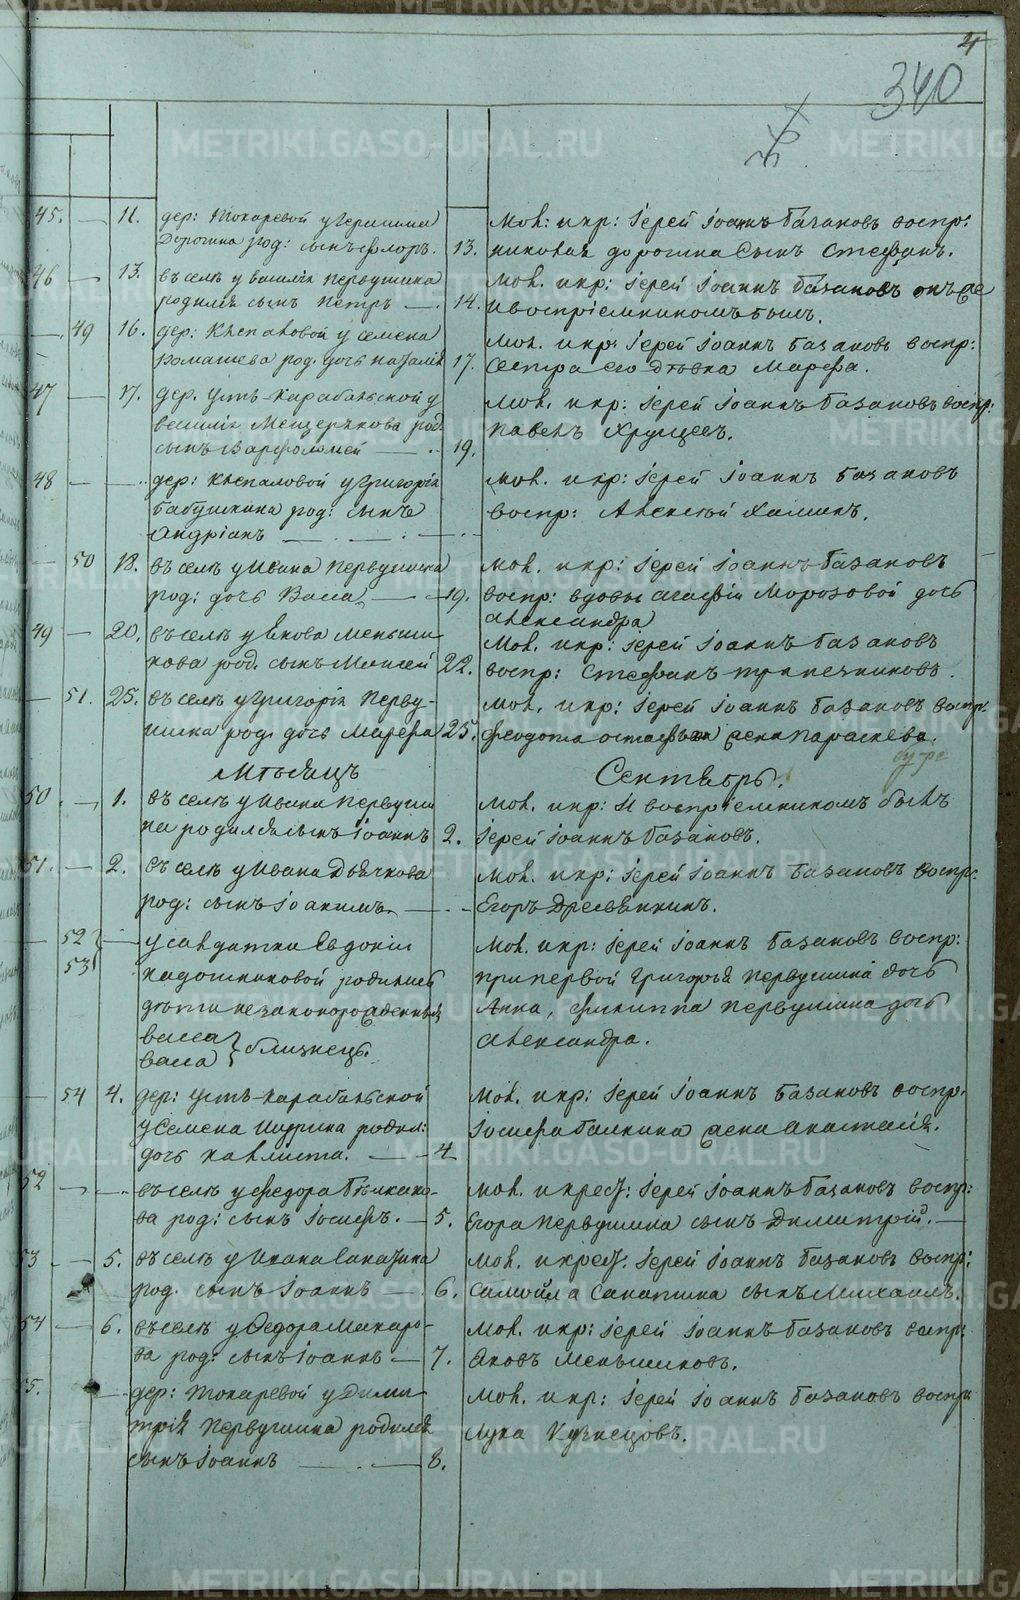 4
340
45. — 11. дер: Токаревой у Герасима
Дорогина род: сынъ Флоръ. 13.
Мол: и кр: Іерей Іоаннъ Базановъ воспр:
Дорогина сынъ Стефанъ.
46 — 13. въ селѣ у Василія Первушина
родился сынъ Петръ — 14.
Мол. и кр: Іерей Іоаннъ Базановъ онъ же
и воспріемникомъ былъ.
— 49 16. дер: Кыспаловой у Семена
Ромашева род. дочь Наталія 17.
Мол. и кр: Іерей Іоаннъ Базановъ воспр:
сестра его дѣвка Марфа.
47 — 17. дер. Усть-Карабольской у
Василія Мещерякова род.
сынъ Варфоломей — 19.
Мол. и кр: Іерей Іоаннъ Базановъ воспр:
Павелъ Хрущевъ.
48 — — дер: Кыспаловой у Григорія
Бабушкина род: сынъ
Андріанъ — — : — -
Мол. и кр: Іерей Іоаннъ Базановъ
воспр: Алексѣй
— 50 18. въ селѣ у Ивана Первушина
род: дочь Васса — 19.
Мол. и кр: Іерей Іоаннъ Базановъ
воспр: вдовы Агафіи Морозовой дочь
Александра
49 — 20. въ селѣ у Якова Меньши-
кова род. сынъ Моисей 22.
Мол. и кр: Іерей Іоаннъ Базановъ
воспр: Стефанъ Трапезниковъ.
— 51. 25. въ селѣ у Григорія Перву-
шина род: дочь Марфа 25.
Мол. и кр: Іерей Іоаннъ Базановъ воспр:
Феодота жена Параскева.
Мѣсяцъ
Сентябрь.
50. — 1. въ селѣ у Ивана Первуши
на родился сынъ Іоаннъ 2.
Мол. и кр: и воспріемникомъ былъ
Іерей Іоаннъ Базановъ.
51. — 2. въ селѣ у Ивана Дьячкова
род: сынъ Іоакимъ. — -
Мол. и кр: Іерей Іоаннъ Базановъ воспр:
Егоръ Дресвянкинъ.
— 52 } — у солдатки Евдокіи
53
Кадошниковой родились
дѣти незаконорожденныя
Васса } близнецы.
Васса
Мол. и кр: Іерей Іоаннъ Базановъ воспр:
при первой Григорья Первушина дочь
Анна, Филиппа Первушина дочь
Александра.
— 54 4. дер: Усть-Карабольской
у Семена родил:
дочь Каллиста. — 4
Мол. и кр: Іерей Іоаннъ Базановъ воспр.
Іосифа Галкина жена Анастасія.
52 — — въ селѣ у Федора
ва род: сынъ Іосифъ. — 5.
Мол. и крес: Іерей Іоаннъ Базановъ воспр:
Егора Первушина сынъ Димитрій. —
53 — 5. въ селѣ у Ивана Санатина
род. сынъ Іоаннъ — 6.
Мол. и крес: Іерей Іоаннъ Базановъ воспр:
Самойла Санатина сынъ Михаилъ.
54 — 6. въ селѣ у Федора Макаро-
ва род: сынъ Іоаннъ — 7.
Мол. и кр: Іерей Іоаннъ Базановъ воспр:
Яковъ Меньшиковъ.
55. — дер: Токаревой у Дими
трія Первушина родился
сынъ Іоаннъ — — 8.
Мол. и кр: Іерей Іоаннъ Базановъ воспр:
Лука Кузнецовъ.
METRIKI.GASO-URAL.RU